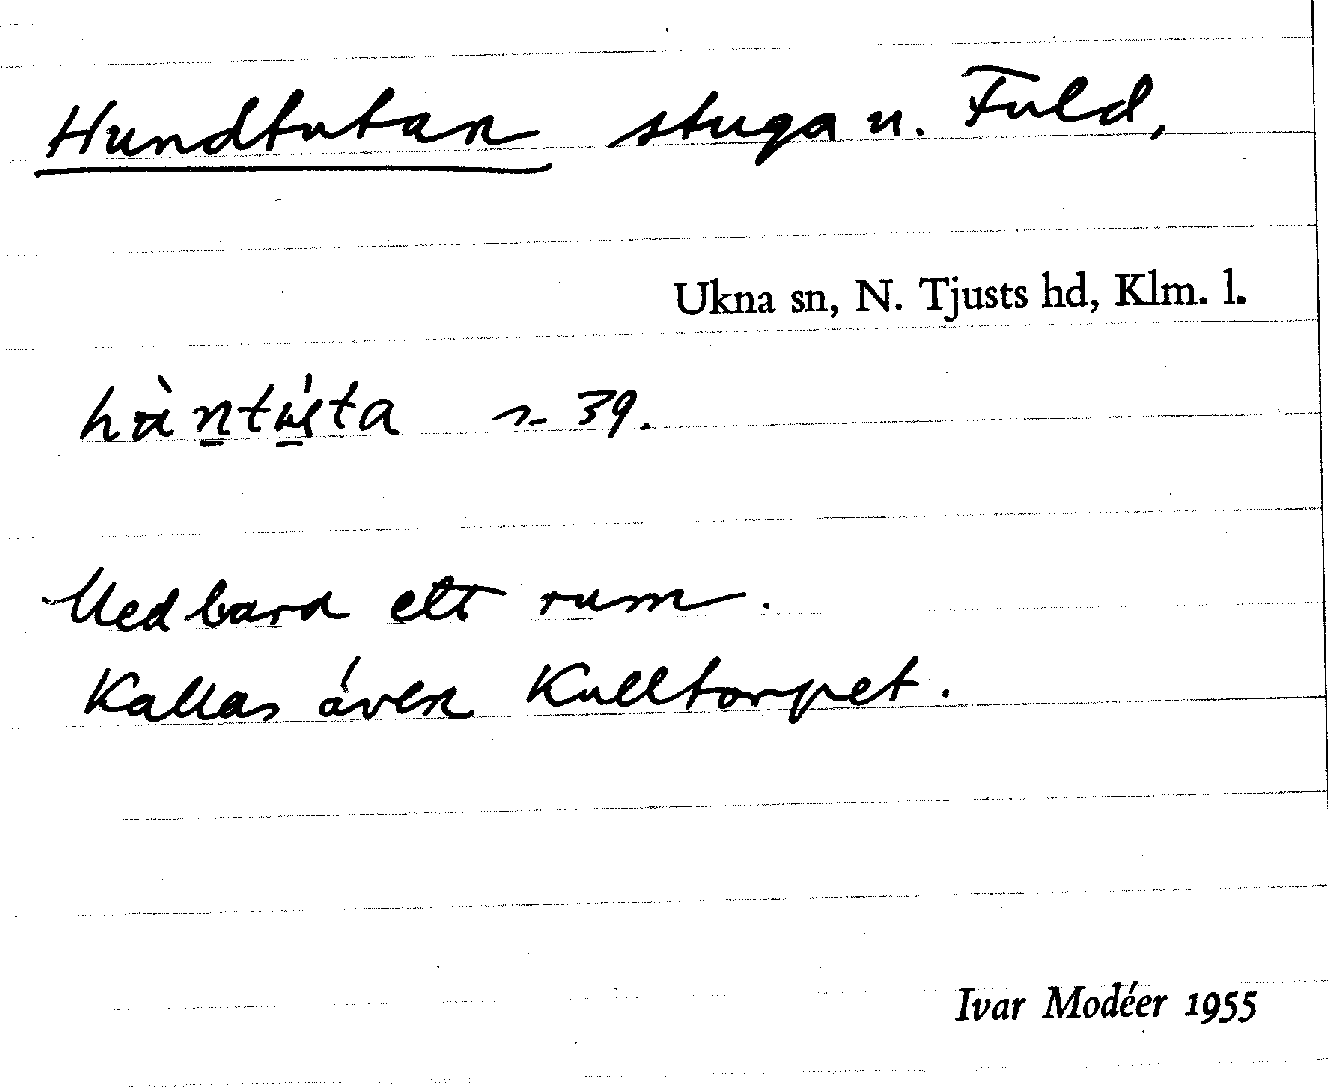 Hundtutan stuga u. Fuld,
Ukna sn, N. Tjusts hd, Klm. l.
s 39.
Med bara ett rum.
Kallas även Kulltorpet.
Ivar Modéer 1955